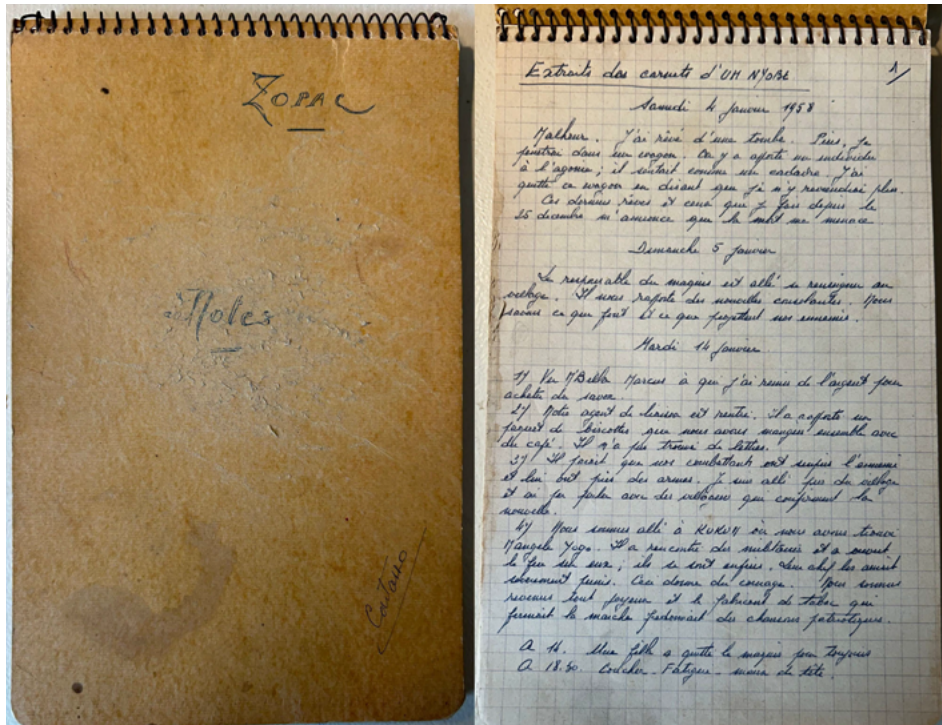 ZOPAC
Notes
Extraits des carnets d'UM NYOBE
1/
Samedi 4 janvier 1958
Malheur. J'ai rêvé d'une tombe. Puis, je
pénétrai dans un wagon. On y a apporté un individu
à l'agonie ; il sentait comme un cadavre. J'ai
quitté ce wagon en disant que je n'y reviendrai plus.
Ces derniers rêves et ceux que je fais depuis le
25 décembre m'annonce que la mort me menace
Dimanche 5 janvier
Le responsable du maquis est allé se renseigner au
village. Il nous rapporte des nouvelles consolantes. Nous
savons ce que font et ce que projettent nos ennemis.
Mardi 14 janvier
1) Vu Marcus à qui j'ai remis de l'argent pour
acheter du savon.
2) Notre agent de liaison est rentré. Il a rapporté un
paquet de biscottes que nous avons manger ensemble avec
du café. Il n'a pas trouvé de lettres.
3) Il paraît que nos combattants ont surpris l'ennemi
et leur ont pris des armes. Je suis allé près du village
et ai pu parler avec des villageois qui confirment la
nouvelle.
4) Nous sommes allé à KUKUM où nous avons trouvé
Mangele Yogo. Il a rencontré des militaires et a ouvert
le feu sur eux ; ils se sont enfuis. Leur chef les aurait
sévèrement punis. Ceci donne du courage. Nous sommes
revenus tout joyeux et le fabricant de tabac qui
fermait la marche fredonnait des chansons patriotiques.
A 14. Une fille a quitté le maquis pour toujours
A 18.30 Coucher - Fatigue - maux de tête.